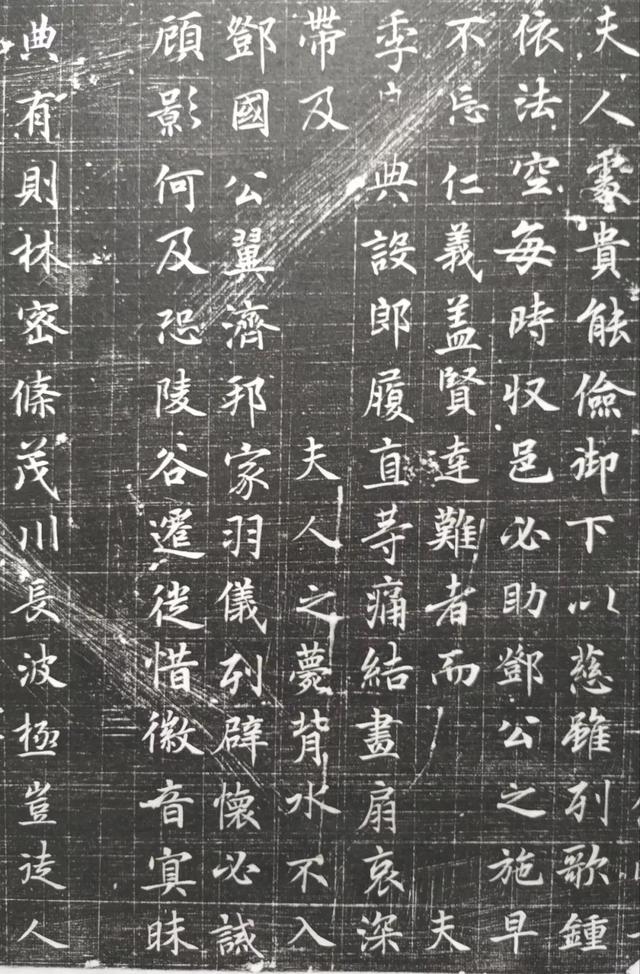 夫人處貴能儉御下以慈雖列歌鍾
依法空每時収邑必助鄧公之施早
不忘仁義盖賢達難者而 夫
季 典設郎履直等痛結畫扇哀深
帶及 夫人之薨背水不入
鄧國公翼濟邦家羽儀列辟懷必誠
顧影何及恐陵谷遷徙惜徽音冥昧
典有則林密條茂川長波極豈徒人